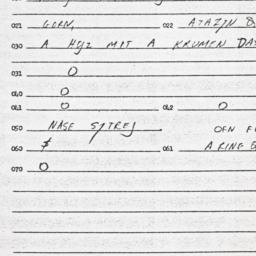 021 GORN, 022 ATAZJN
030 A HOJZ MIT A KRUMEN DA
031 O
040 O
041 O 042 O
050 NASE SYTREJ OFN F
060 $ 061 A RING
070 O